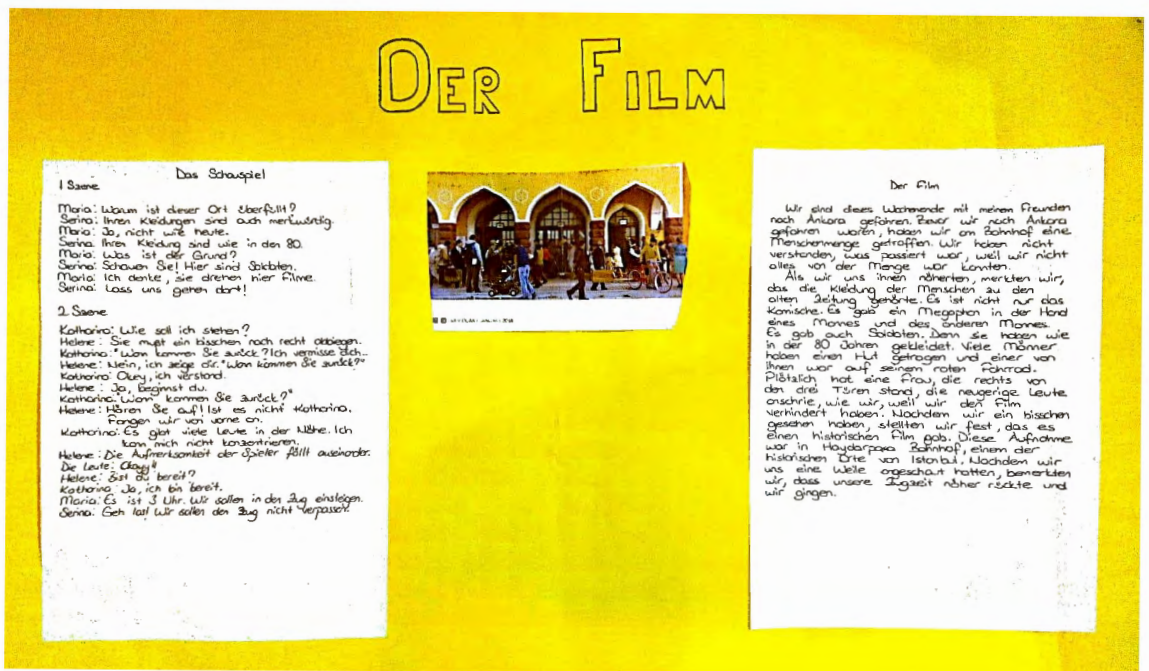 DER FILM
Das Schauspiel
1 Szene
Maria: Warum ist dieser Ort überfüllt?
Serina: Ihren Kleidungen sind auch merkwürdig.
Maria: Ja, nicht wie heute.
Serina: Ihren Kleidung sind wie in den 80.
Maria: Was ist der Grund?
Serina: Schauen Sie! Hier sind Soldaten.
Maria: Ich denke, sie drehen hier Filme.
Serina: Lass uns gehen dort!
2. Szene
Katharina: Wie soll ich stehen?
Helene: Sie muss ein bisschen nach recht abbiegen.
Katharina: "Wann kommen Sie zurück? Ich vermisse dich...
Helene: Nein, ich zeige dir. "Wann kommen Sie zurück?"
Katharina: Okey, ich verstand.
Helene: Ja, beginnst du.
Katharina: Wann kommen Sie zurück?"
Helene: Hören Sie auf! Ist es nicht Katharina.
Fangen wir von vorne an.
Katharina: Es gibt viele Leute in der Nähe. Ich
kann mich nicht konzentrieren.
Helene: Die Aufmerksamkeit der Spieler fällt auseinander.
Die Leute:
Helene: Bist du bereit?
Katharina: Ja, ich bin bereit.
Maria: Es ist 3 Uhr. Wir sollen in den Zug einsteigen.
Serina: Geh los! Wir sollen den Zug nicht verpassen.
Der Film
Wir sind dieses Wochenende mit meinem Freunden
nach Ankara gefahren. Bevor wir nach Ankara
gefahren waren, haben wir am Bahnhof eine
Menschenmenge getroffen. Wir haben nicht
verstanden, was passiert war, weil wir nicht
alles von der Menge war konnten.
Als wir uns ihnen näherten, merkten wir,
das die Kleidung der Menschen zu den
alten Zeitung gehörte. Es ist nicht nur das
Komische. Es gab ein Megaphon in der Hand
eines Mannes und des anderen Mannes.
Es gab auch Soldaten. Denn sie haben wie
in der 80 Jahren gekleidet. Viele Männer
haben einen Hut getragen und einer von
ihnen war auf seinem roten Fahrrad.
Plötzlich hat eine Frau, die rechts von
den drei Türen stand, die neugerige Leute
anschrie, wie wir, weil wir den Film
verhindert haben. Nachdem wir ein bisschen
gesehen haben, stellten wir fest, das es
einen historischen Film gab. Diese Aufnahme
war in Haydarpaşa Bahnhof, einem der
historischen Orte von Istanbul. Nachdem wir
uns eine Weile angeschaut hatten, bemerkten
wir, dass unsere Zugzeit näher rückte und
wir gingen.